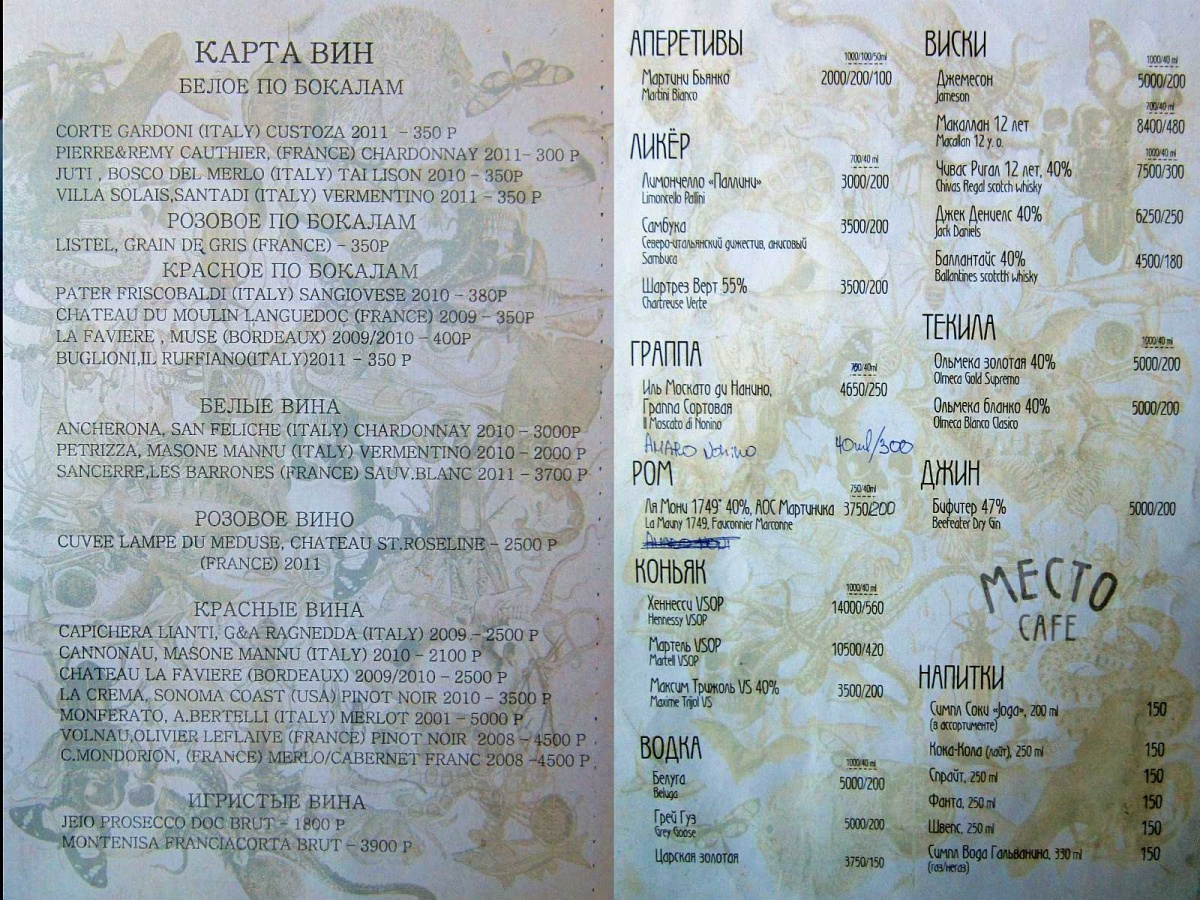 КАРТА ВИН
БЕЛОЕ ПО БОКАЛАМ
CORTE GARDONI (ITALY) CUSTOZA 2011 – 350 Р
PIERRE&REMY CAUTHIER, (FRANCE) CHARDONNAY 2011– 300 Р
JUTI , BOSCO DEL MERLO (ITALY) TAI LISON 2010 – 350Р
VILLA SOLAIS,SANTADI (ITALY) VERMENTINO 2011 – 350 Р
РОЗОВОЕ ПО БОКАЛАМ
LISTEL, GRAIN DE GRIS (FRANCE) – 350Р
КРАСНОЕ ПО БОКАЛАМ
PATER FRISCOBALDI (ITALY) SANGIOVESE 2010 – 380Р
CHATEAU DU MOULIN LANGUEDOC (FRANCE) 2009 – 350Р
LA FAVIERE , MUSE (BORDEAUX) 2009/2010 – 400Р
BUGLIONI,IL RUFFIANO(ITALY)2011 – 350 Р
БЕЛЫЕ ВИНА
ANCHERONA, SAN FELICHE (ITALY) CHARDONNAY 2010 – 3000Р
PETRIZZA, MASONE MANNU (ITALY) VERMENTINO 2010 – 2000 Р
SANCERRE,LES BARRONES (FRANCE) SAUV.BLANC 2011 – 3700 Р
РОЗОВОЕ ВИНО
CUVEE LAMPE DU MEDUSE, CHATEAU ST.ROSELINE – 2500 Р
(FRANCE) 2011
КРАСНЫЕ ВИНА
CAPICHERA LIANTI, G&A RAGNEDDA (ITALY) 2009 – 2500 Р
CANNONAU, MASONE MANNU (ITALY) 2010 – 2100 Р
CHATEAU LA FAVIERE (BORDEAUX) 2009/2010 – 2500 Р
LA CREMA, SONOMA COAST (USA) PINOT NOIR 2010 – 3500 Р
MONFERATO, A.BERTELLI (ITALY) MERLOT 2001 – 5000 Р
VOLNAU,OLIVIER LEFLAIVE (FRANCE) PINOT NOIR 2008 – 4500 Р
C.MONDORION, (FRANCE) MERLO/CABERNET FRANC 2008 –4500 Р
ИГРИСТЫЕ ВИНА
JEIO PROSECCO DOC BRUT – 1800 Р
MONTENISA FRANCIACORTA BRUT – 3900 Р
АПЕРЕТИВЫ
1000/100/50ml
Мартини Бьянко 2000/200/100
Martini Bianco
ЛИКЁР
700/40 ml
Лимончелло «Паллини» 3000/200
Limoncello Pallini
Самбука 3500/200
Северо-итальянский дижестив, анисовый
Sambuca
Шартрез Верт 55% 3500/200
Chartreuse Verte
ГРАППА
700/40ml
Иль Москато ди Нанино, 4650/250
Граппа Сортовая
Il Moscato di Nonino
AMARO Nonino 40ml/300
РОМ
750/40ml
Ля Мони 1749" 40%, АОС Мартиника 3750/200
La Mauny 1749, Fauconnier Marconne
КОНЬЯК
1000/40 ml
Хеннесси VSOP 14000/560
Hennessy VSOP
Мартель VSOP 10500/420
Martell VSOP
Максим Трижоль VS 40% 3500/200
Maxime Trijol VS
ВОДКА
1000/40 ml
Белуга 5000/200
Beluga
Грей Гуз 5000/200
Grey Goose
Царская золотая 3750/150
ВИСКИ
1000/40 ml
Джемесон 5000/200
Jameson
700/40 ml
Макаллан 12 лет 8400/480
Macallan 12 y. o.
1000/40 ml
Чивас Ригал 12 лет, 40% 7500/300
Chivas Regal scotch whisky
Джек Дениелс 40% 6250/250
Jack Daniels
Баллантайс 40% 4500/180
Ballantines scotcth whisky
ТЕКИЛА
1000/40 ml
Ольмека золотая 40% 5000/200
Olmeca Gold Supremo
Ольмека бланко 40% 5000/200
Olmeca Blanco Clasico
ДЖИН
Бифитер 47% 5000/200
Beefeater Dry Gin
МЕСТО
CAFE
НАПИТКИ
Симпл Соки «Јода», 200 ml 150
(в ассортименте)
Кока-Кола (лайт), 250 ml 150
Спрайт, 250 ml 150
Фанта, 250 ml 150
Швепс, 250 ml 150
Симпл Вода Гальванина, 330 ml 150
(газ/негаз)